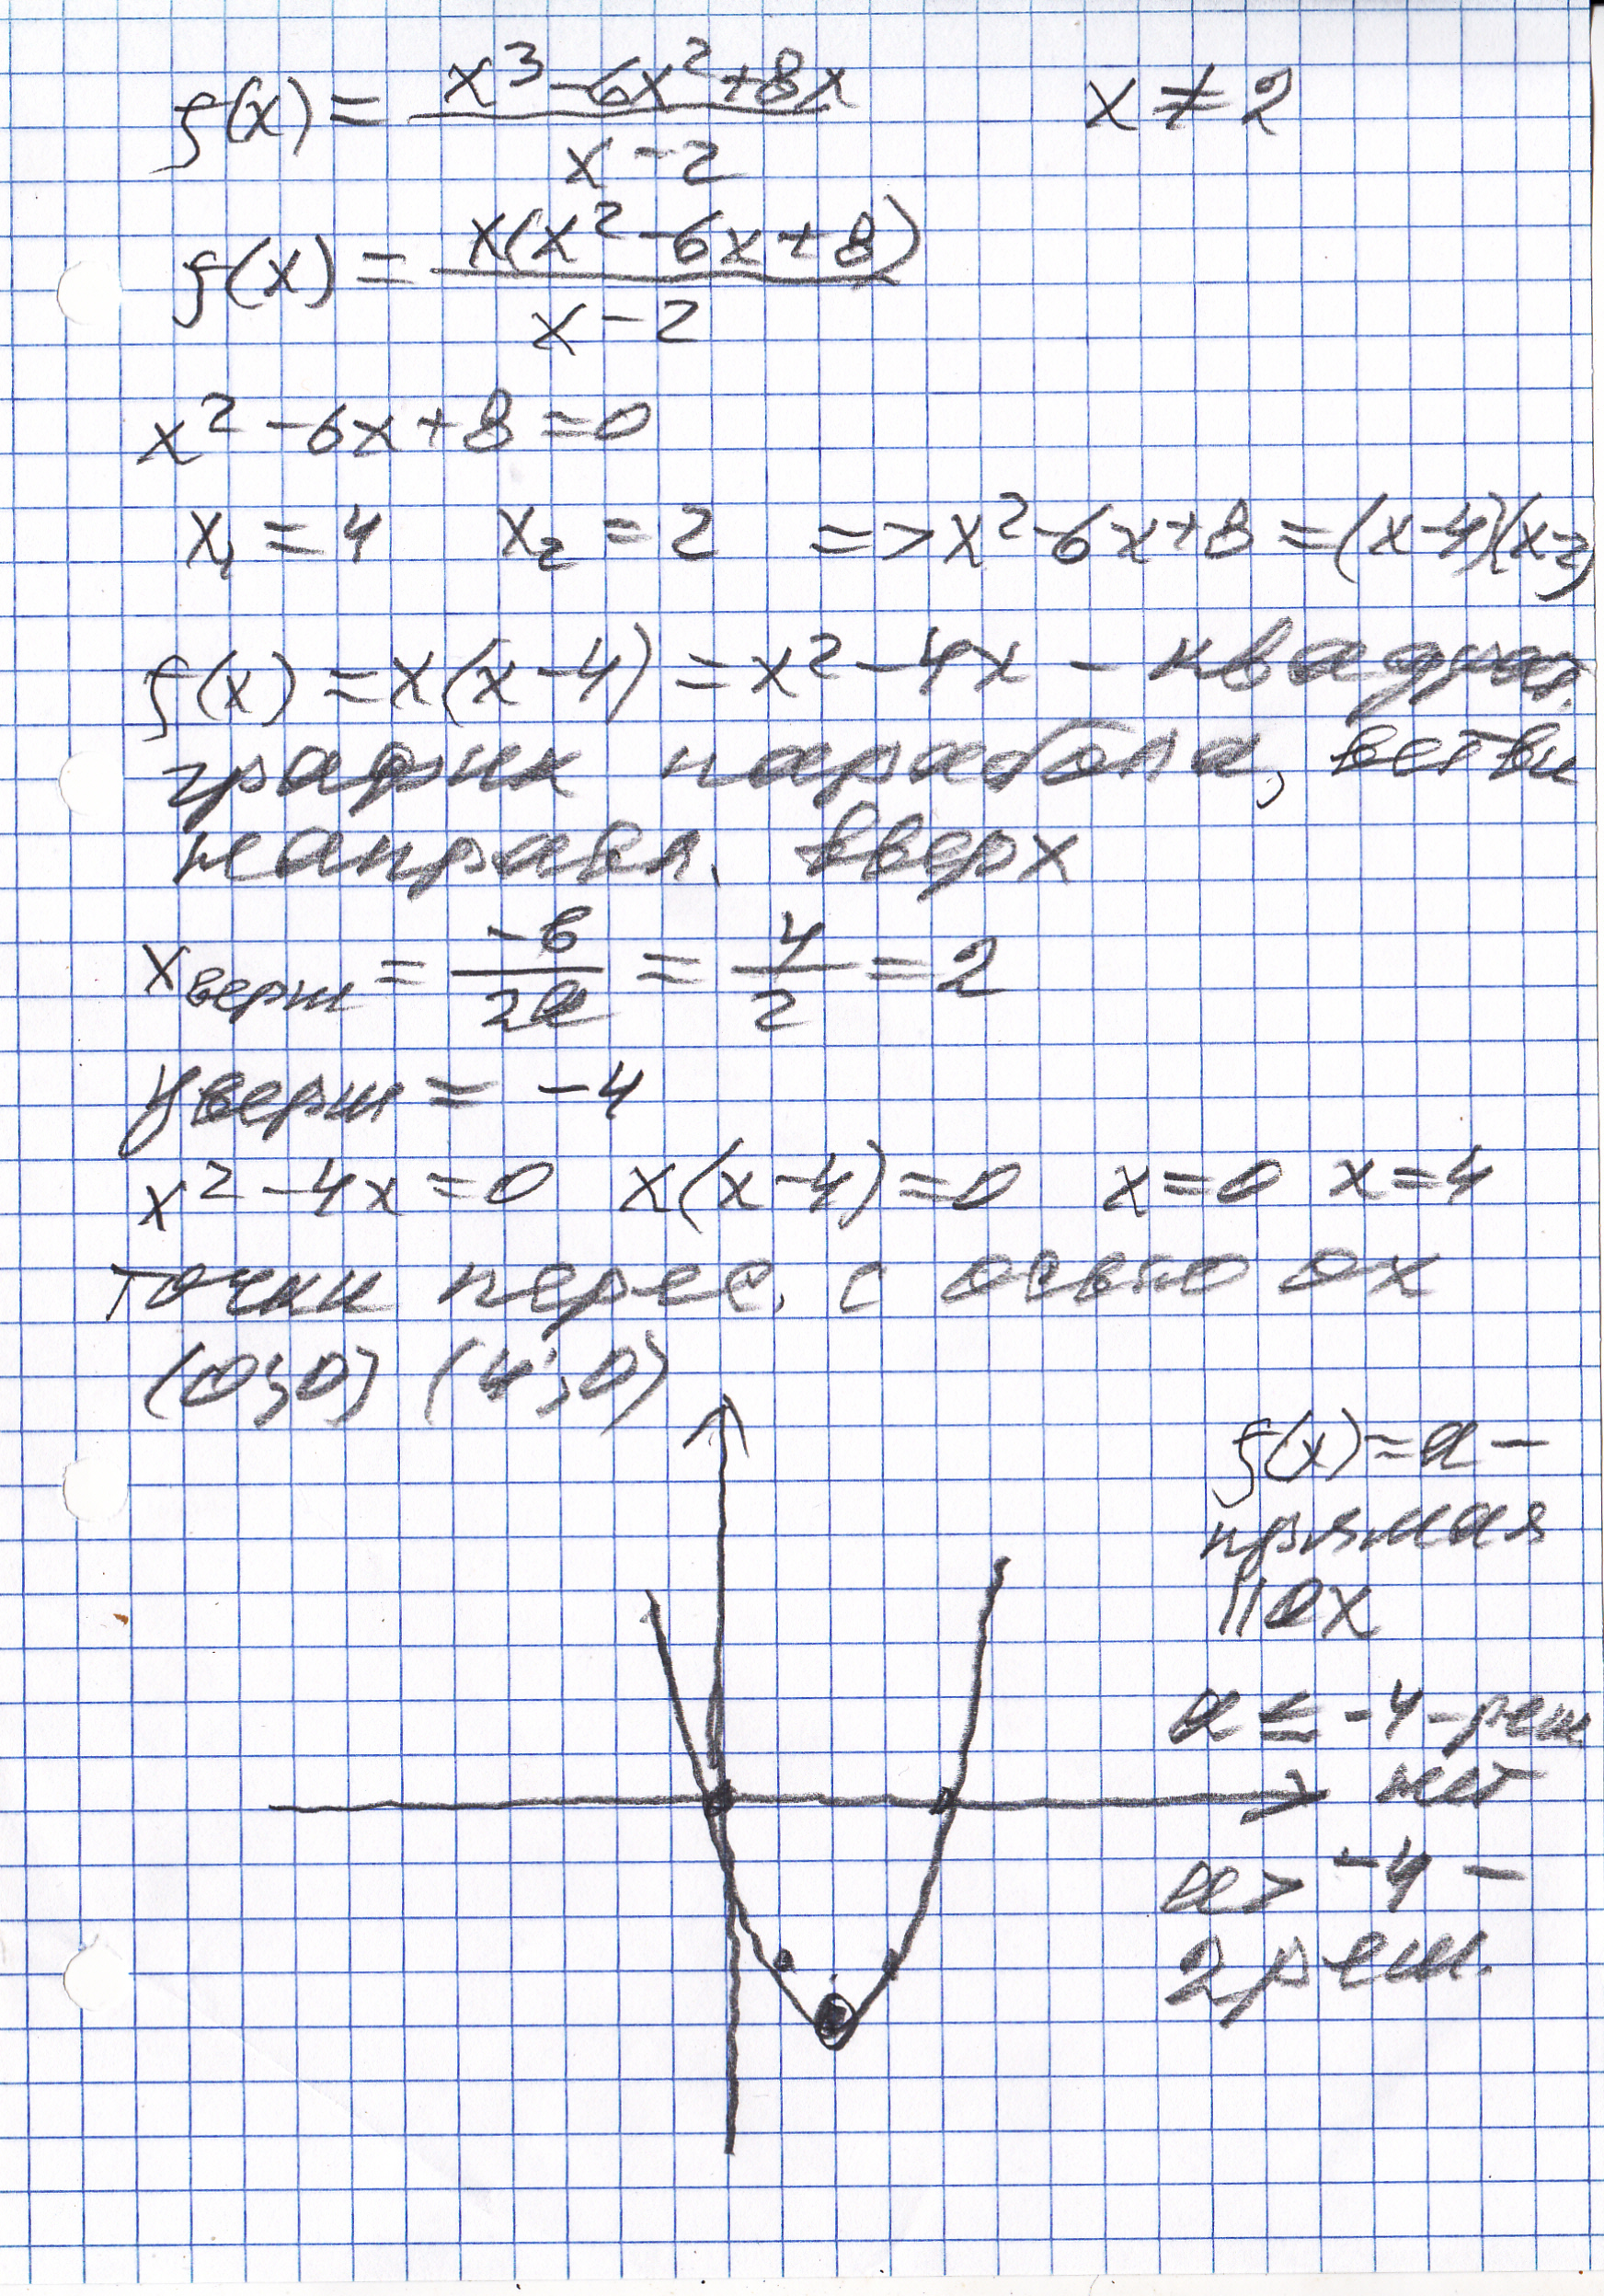 f(x) = (x³-6x²+8x)/(x-2) x ≠ 2
f(x) = x(x²-6x+8)/(x-2)
x²-6x+8=0
x₁=4 x₂=2 => x²-6x+8=(x-4)(x-2)
f(x)=x(x-4)=x²-4x - квадрат.
график парабола, ветви
направл. вверх
xверш = -b/2a = 4/2 = 2
yверш = -4
x²-4x=0 x(x-4)=0 x=0 x=4
точки перес. с осью ox
(0;0) (4;0)
f(x)=a -
прямая
|| ox
a ≤ -4 - реш
нет
a > -4 -
2 реш.